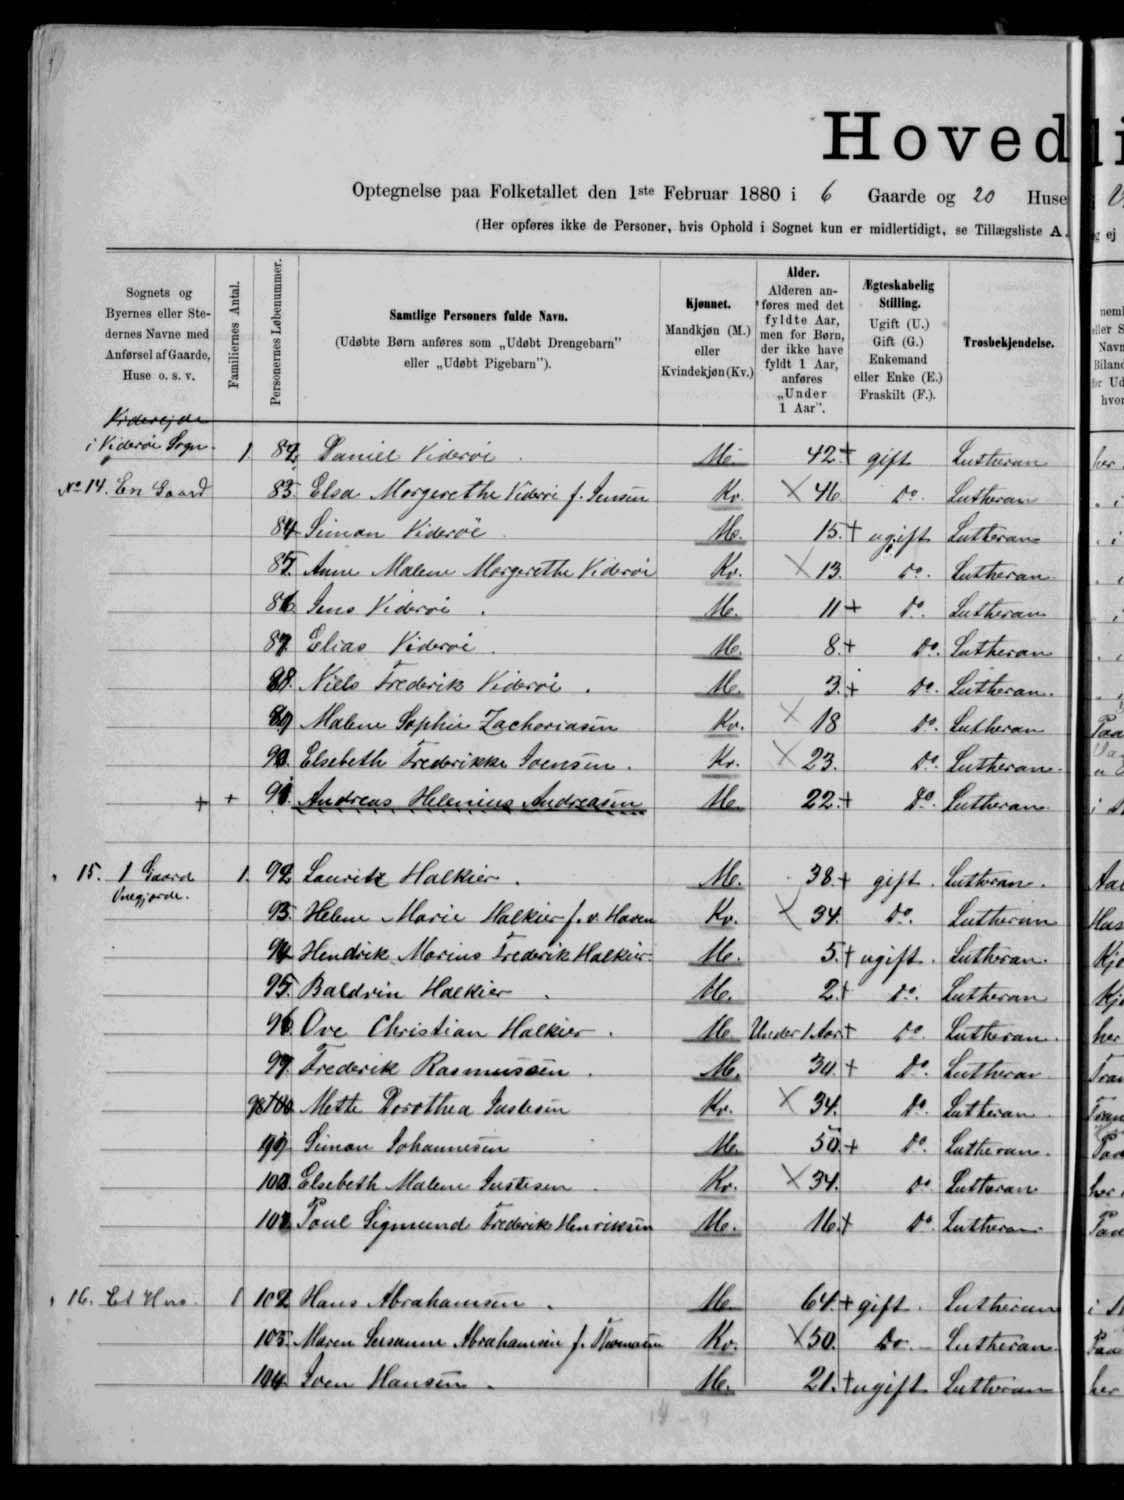 Hoved
Optegnelse paa Folketallet den 1ste Februar 1880 i 6 Gaarde og 20 Huse
(Her opføres ikke de Personer, hvis Ophold i Sognet kun er midlertidigt, se Tillægsliste A.
Sognets og Byernes eller Stedernes Navne med Anførsel af Gaarde, Huse o. s. v.
Familiernes Antal.
Personernes Løbenummer.
Samtlige Personers fulde Navn.
(Udøbte Børn anføres som „Udøbt Drengebarn"
eller „Udøbt Pigebarn").
Kjønnet.
Mandkjøn (M.)
eller
Kvindekjøn (Kv.)
Alder.
Alderen anføres med det fyldte Aar, men for Børn, der ikke have fyldt 1 Aar, anføres „Under 1 Aar".
Ægteskabelig Stilling.
Ugift (U.)
Gift (G.)
Enkemand
eller Enke (E.)
Fraskilt (F.).
Trosbekjendelse.
Viderejde
i Viderøi Sogn. 1 82. Daniel Viderøi . M. 42 + gift Lutheran
No 14. En Gaard 83. Elsa Margrethe Viderøi f. Jensen Kv. × 46 Do. Lutheran
84 Simon Viderøi M. 15. + ugift Lutheran
85. Anne Malene Margrethe Viderøi Kv. × 13. Do. Lutheran
86 Jens Viderøi . M. 11 + Do. Lutheran
87. Elias Viderøi . M. 8. + Do. Lutheran
88. Niels Frederik Viderøi . M. 3. + Do. Lutheran.
89 Malene Sophie Zachariasen Kv. × 18 Do. Lutheran
90. Elsebeth Frederikke Joensen . Kv. × 23. Do. Lutheran.
+ + 91. Andreas Helenius Andreasen M. 22. + Do. Lutheran.
15. 1 Gaard 1. 92 Lauritz Halkier . M. 38. + gift . Lutheran.
Onegjerde.
93. Helene Marie Halkier f. v. Haven Kv. × 34. Do. Lutheran
94 Hendrik Marius Frederik Halkier. M. 5. + ugift . Lutheran.
95. Baldvin Halkier . M. 2. + Do. Lutheran
96. Ove Christian Halkier . M. Under 1 Aar + Do. Lutheran.
97. Frederik Rasmussen . M. 34 + Do. Lutheran
98 Mette Dorothea Justesen Kv. × 34. Do. Lutheran
99 Simon Johannesen M. 50. + Do. Lutheran.
100. Elsebeth Malene Justesen . Kv. × 34. Do. Lutheran
101. Poul Sigmund Frederik Henriksen M. 16. + Do. Lutheran
16. Et Hus. 1 102 Hans Abrahamsen . M. 64. + gift . Lutheran
103. Maren Susanne Abrahamsen f. Thomasen Kv. × 50. Do. Lutheran.
104. Joen Hansen . M. 21. + ugift Lutheran